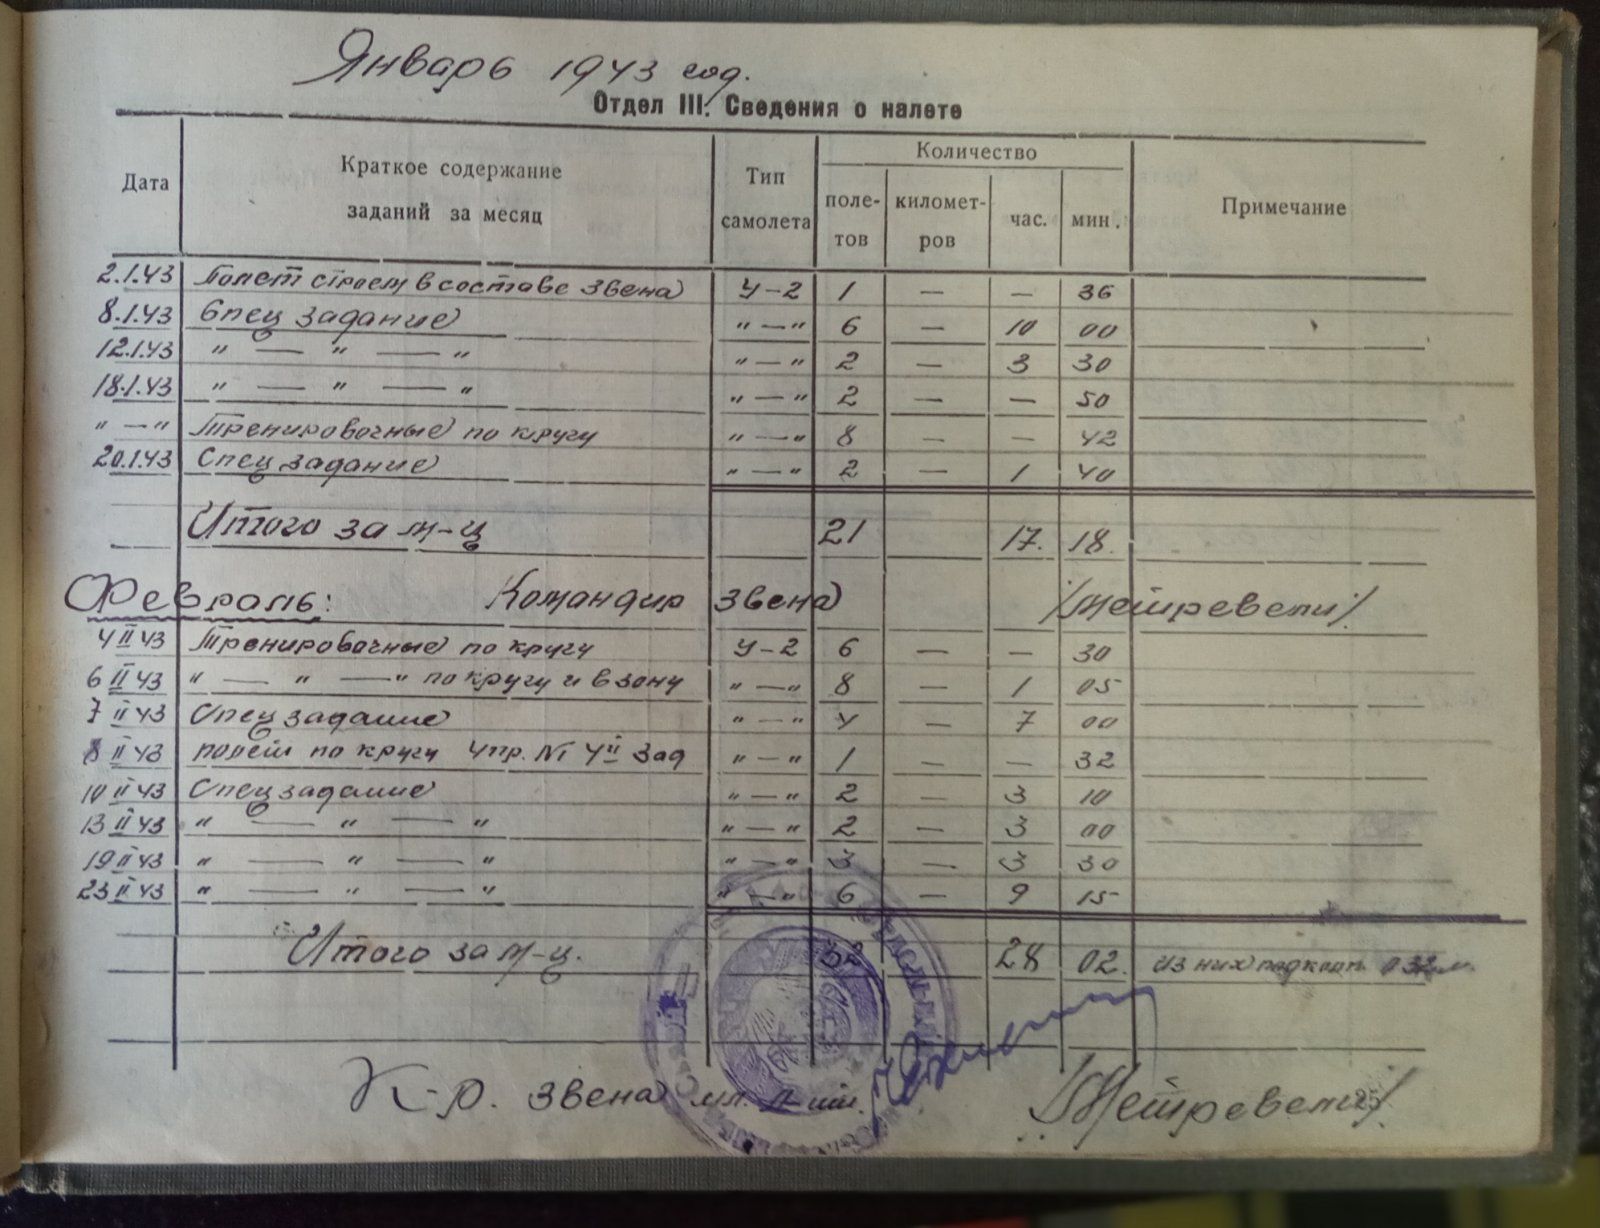 Январь 1943 год.
Отдел III. Сведения о налете
Дата Краткое содержание заданий за месяц Тип самолета Количество Примечание
поле-тов километ-ров час. мин.
2.1.43 Полет строем в составе звена У-2 1 — — 36
8.1.43 Спец задание " — " 6 — 10 00
12.1.43 " — " — " " — " 2 — 3 30
18.1.43 " — " — " " — " 2 — — 50
" — " Тренировочные по кругу " — " 8 — — 42
20.1.43 Спец задание " — " 2 — 1 40
Итого за м-ц 21 17. 18.
Февраль: Командир звена /Метревели/
4 II 43 Тренировочные по кругу У-2 6 — — 30
6 II 43 " — " — " по кругу и в зону " — " 8 — 1 05
7 II 43 Спец задание " — " 4 — 7 00
8 II 43 полет по кругу Упр. № 4 II зад " — " 1 — — 32
10 II 43 Спец задание " — " 2 — 3 10
13 II 43 " — " — " " — " 2 — 3 00
19 II 43 " — " — " " — " 3 — 3 30
23 II 43 " — " — " " — " 6 — 9 15
Итого за м-ц. 32 28 02. из них под колп. 0 32 м.
К-р. звена мл. л-т /Метревели/